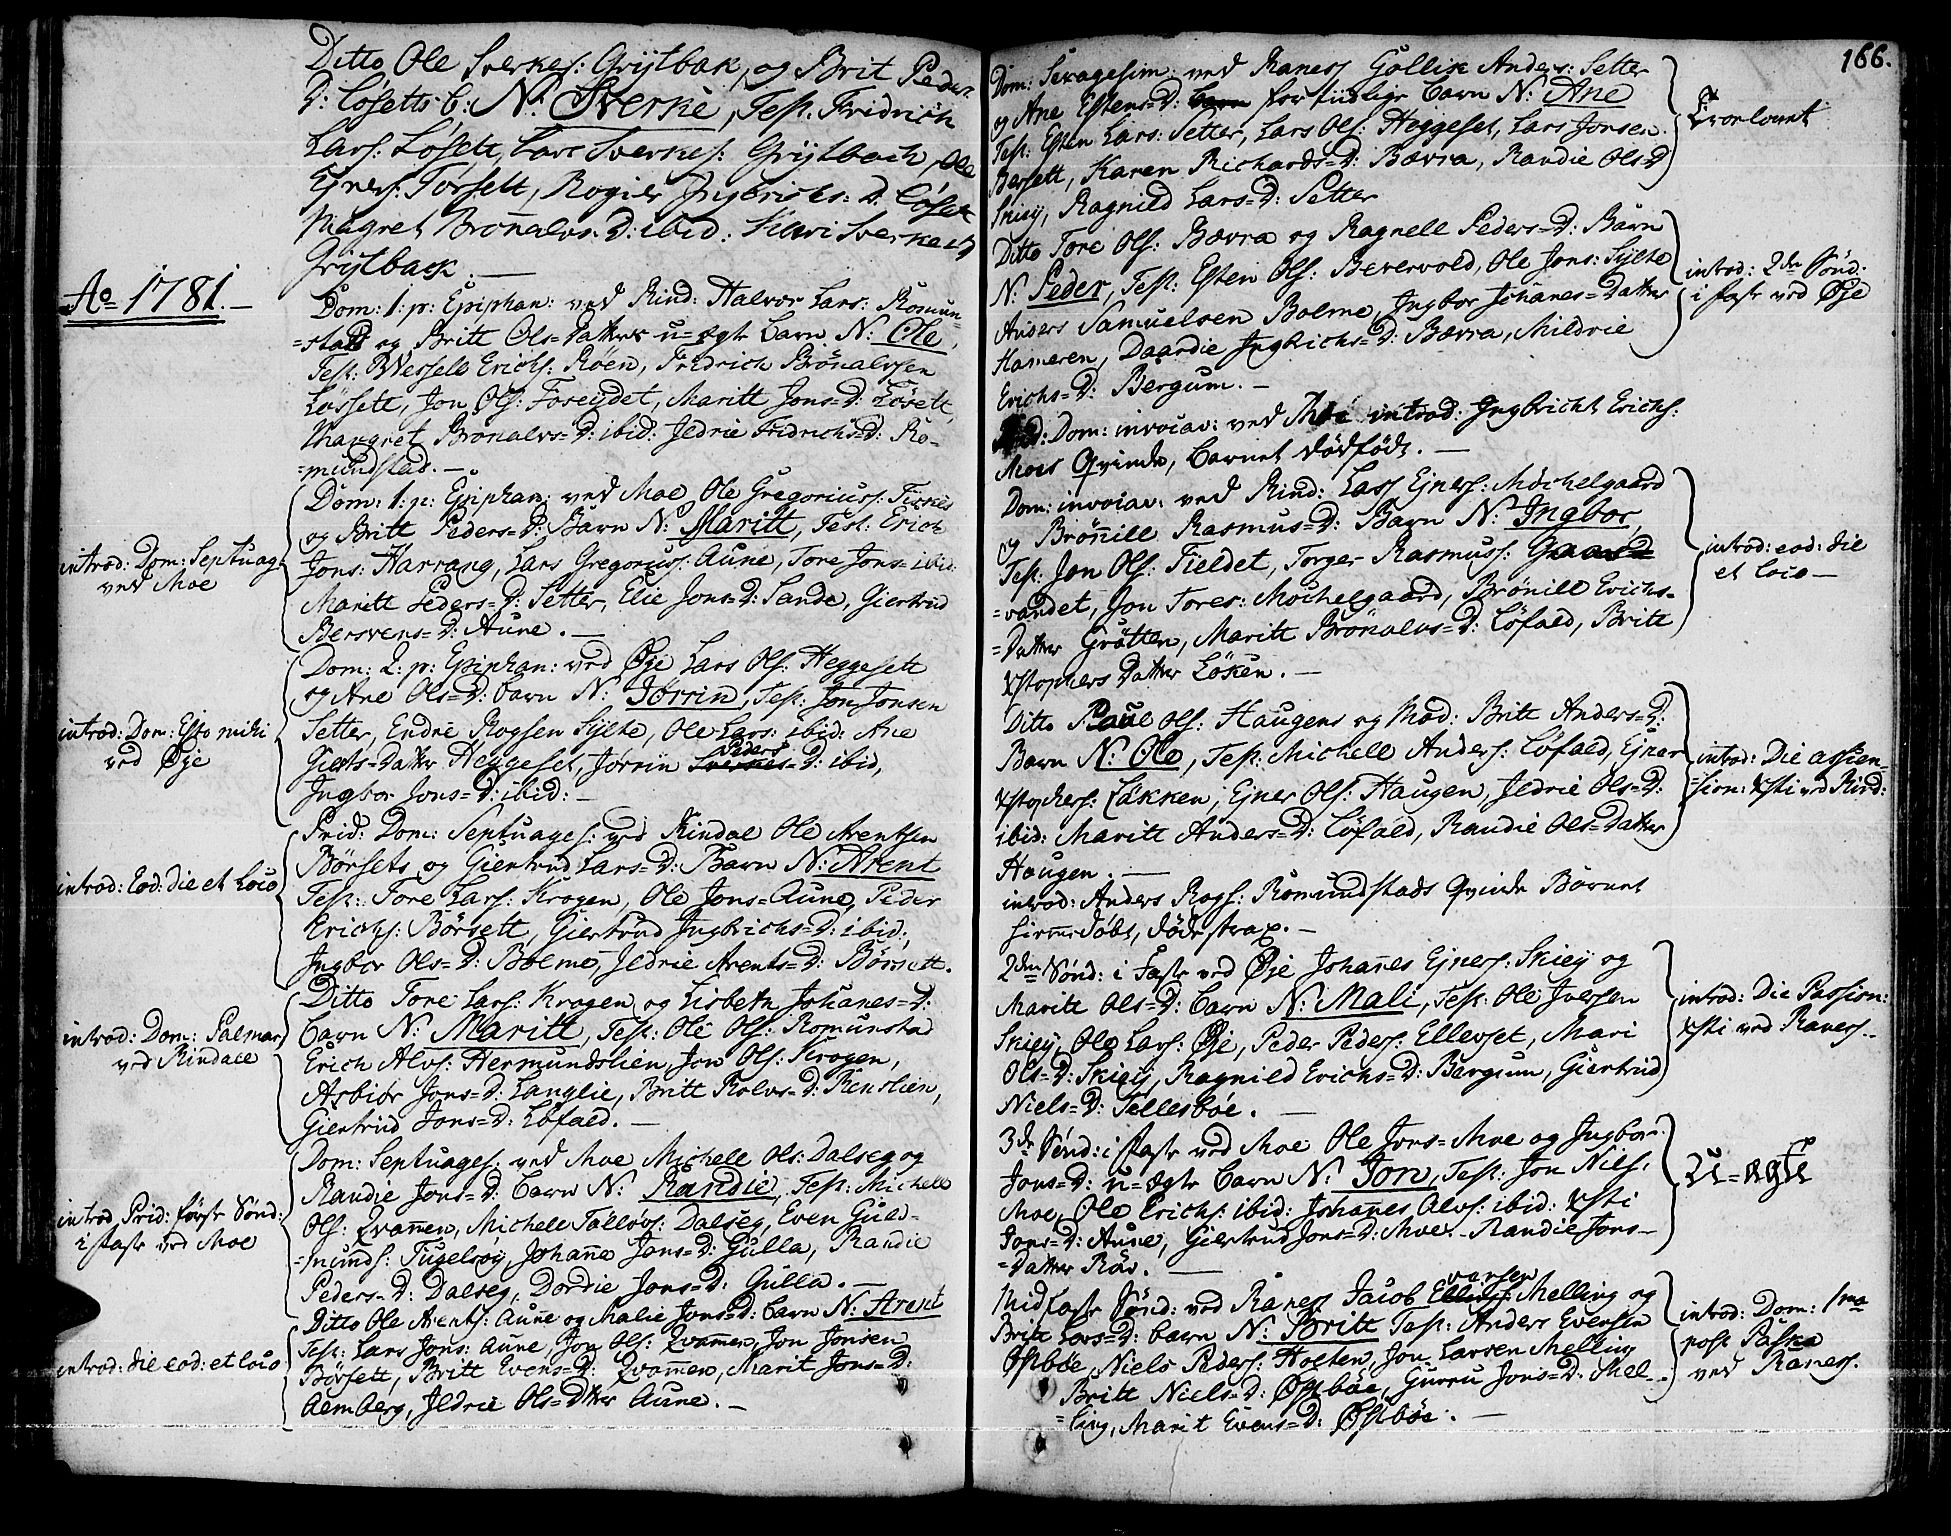 Ditto Ole Sverkes: Grytbak, og Brit Peders
D: Løsetts b: N: Sverke, Test. Fridrich
Lars: Løsett, Lars Sverkes: Grytbach, Ole
Ejners: Torsett, Rogier Ingbrichs=D: Løsett
Magret Brønalvs=D: ibid: Kari Sverkes=D
Grytback. —
Ao 1781. —
Dom: 1: p: Epiphan: ved Rind: Halvor Lars: Romun-
=stad og Britt Ols=Datter u=ægte barn N: Ole,
Test: Wessels Erichs: Røen, Fredrich Brønalvsen
Løssett, Jon Ols: Foreydet, Maritt Jons=D: Løsett,
Margret Brønalvs=D: ibid: Jldrie Fridrichs=D: Ro-
=mundstad. —
Dom: 1: p: Epiphan: ved Moe Ole Gregoriuss: Fiske
og Britt Peders=D: Barn N: Maritt, Test: Erich
Jons: Harrang, Lars Gregorius: Aune, Tore Jons= ibid
Maritt Peders=D: Setter, Elie Jons=D: Sande, Giertrud
Bersvens=D: Aune. —
introd: Dom: Septuag:
ved Moe
Dom: 2: p: Epiphan: ved Øje Lars Ols: Heggesett
og Ane Ols=D: barn N: Jorrin, Test: Jon Jonsen
Setter, Endre Rogsen Sylte, Ole Lars: ibid: Ane
Gierts=Datter Heggeset, Jorrin Peders=D: ibid,
Ingbor Jons=D: ibid: —
introd: Dom: Esto mihi
ved Øje
Prid: Dom: Septuages: ved Rindal Ole Arentsen
Børsets og Giertrud Lars=D: Barn N: Arent
Test: Tore Lars: Krogen, Ole Jons= Aune, Peder
Erichs: Børsett, Giertrud Ingbrichs=D: ibid:,
Ingbor Ols=D: Bolme, Jldrie Arents=D: Børsett.
introd: Eod: die et loco
Ditto Tore Lars: Krogen og Lisbeth Johanes=D:
barn N: Maritt, Test: Ole Ols: Romunstad
Erich Alvs: Hermundslien, Jon Ols: Krogen,
Asbiør Jons=D: Langlie, Britt Rolvs=D: Renslien,
Giertrud Jons=D: Løfald. —
introd: Dom: Palmar:
ved Rindale
Dom: Septuages: ved Moe Michell Ols: Dalseg og
Randie Jons=D: barn N: Randie, Test: Michell
Ols: Qvammen, Michell Tølløvs: Dalseg, Even Guld-
=munds: Fugelsøy, Johanne Jons=D: Gulla, Randie
Peders=D: Dalseg, Dordie Jons=D: Gulla. —
introd. Prid: først Sønd:
i faste ved Moe
Ditto Ole Arents: Aune og Malie Jons=D: barn N: Arent
Test: Lars Jons: Aune, Jon Ols: Qvammen, Jon Jonsen
Børsett, Britt Evens=D: Qvammen, Marit Jons=D:
Aemberg, Jldrie Ols=Dtter Aune. —
introd: die eod: et loco
166.
Dom: Sexagesim: ved Ranes Gøllik Anders: Setter
og Ane Estens=D: for tiidlige barn N: Ane
Test: Esten Lars: Setter, Lars Ols: Heggeset, Lars Jonsen
Bersett, Karen Richards=D: Bævra, Randie Ols=D
Skiey, Ragnild Lars=D: Setter
Ditto Tore Ols: Bævra og Ragnell Peders=D: Barn
N: Peder, Test: Esten Ols: Bevervold, Ole Jons: Sylte
Anders Samuelsen Bolme, Ingbor Johanes=Datter
Hameren, Daardie Ingbrichs=D: Bævra, Mildrie
Erichs=D: Bergum. —
introd: 2den Sønd:
i faste ved Øje
Dom: invocav: ved Moe introd: Ingbricht Erichs:
Moes Qvinde, barnet dødfødt. —
Dom: invocav: ved Rind: Lars Ejners: Mochelgaard
og Brønnill Rasmus=D: Barn N: Ingbor,
Test: Jon Ols: Fieldet, Torger Rasmuss: Gaas
=vandet, Jon Tores: Mochelgaard, Brønill Erichs=
=Datter Grøtten, Maritt Brønalvs=D: Løfald, Britt
Xstophers Datter Løken. —
introd: eod: die
et loco —
Ditto Paul Ols: Haugens og Mod: Britt Anders=D:
Barn N: Ole, Test: Michell Anders: Løfald, Ejner
Xstophers: Løkken, Ejner Ols: Haugen, Jldrie Ols=D:
ibid: Maritt Anders=D: Løfald, Randie Ols=Datter
Haugen. —
introd: Die assen=
=sion: Xsti ved Rind:
introd: Anders Rogs: Romundstads Qvinde Barnet
hiemedøbt, døde strax. —
2den Sønd: i Faste ved Øje Johannes Ejners: Skiey og
Maritt Ols=D: barn N: Mali, Test: Ole Iversen
Skiey, Ole Lars: Øje, Peder Peders: Ellevset, Mari
Ols=D: Skiey, Ragnild Erichs=D: Bergum, Giertrud
Niels=D: Tellesbøe. —
introd: Die Passion:
Xsti ved Ranes. —
3de Sønd: i faste ved Moe Ole Jons= Moe og Ingbor
Jons=D: u=ægte barn N: Jon, Test: Jon Niels:
Moe, Ole Erichs: ibid: Johanes Alvs: ibid: Xsti
Jons=D: Aune, Giertrud Jons=D: Moe. Randie Jons-
=Datter Røv. —
U=ægte
Midfaste Sønd: ved Ranes Jacob Evarsen Melling og
Britt Lars=D: barn N: Britt Test: Anders Eversen
Østbøe, Niels Peders: Holten, Jon Larsen Melling
Britt Niels=D: Østbøe, Gurru Jons=D: Mel-
=ling, Marit Evens=D: Østbøe. —
introd: Dom: 1ma
post Paska
ved Ranes.